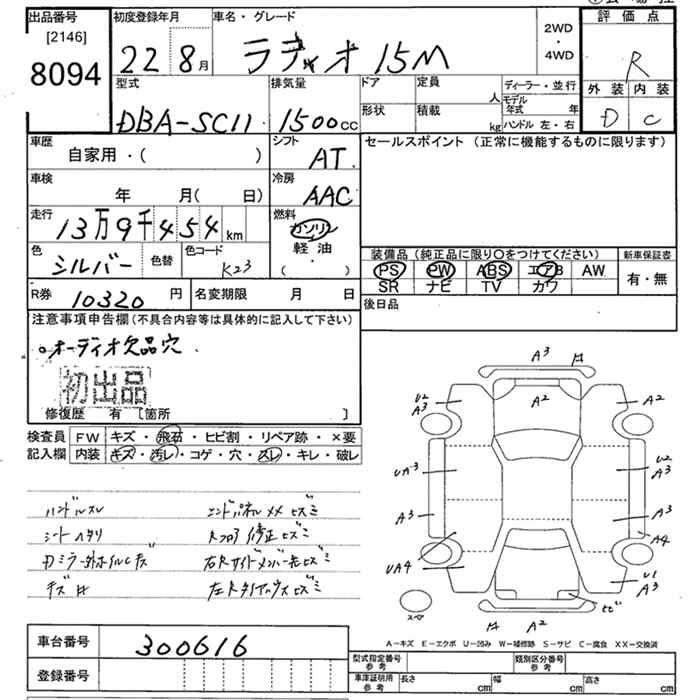 出品番号
[2146]
8094
初度登録年月
22 8月
車名・グレード
ラディオ 15M
2WD
・
4WD
評価点
R
外装 内装
D C
型式
DBA-SC11
排気量
1500cc
ドア
形状
定員
人
積載
kg
ディーラー・並行
モデル年式 年
ハンドル 左・右
車歴
自家用・( )
シフト
AT
セールスポイント (正常に機能するものに限ります)
車検
年 月( 日)
冷房
AAC
走行
13万9千454km
燃料
ガソリン
軽油
・
( )
色
シルバー
色替
色コード
K23
装備品 (純正品に限り○をつけてください)
PS PW ABS エアB AW
SR ナビ TV カワ
新車保証書
有・無
R券
10320円
名変期限 月 日
後日品
注意事項申告欄(不具合内容等は具体的に記入して下さい)
○オーディオ欠品穴.
初出品
修復歴 有 [箇所 ]
検査員
記入欄
FW キズ・飛石・ヒビ割・リペア跡・×要
内装 キズ・汚レ・コゲ・穴・スレ・キレ・破レ
ハンドルスレ
シートヘタリ
エンドパネルメメヒズミ
Rフロア修正ヒズミ
左Rタイヤハウスヒズミ
A3
A2
U2
A3
A2
UA3
U2
A3
A3
A3
A4
UA4
U1
A3
スペア
ヒビ
A2
A-キズ E-エクボ U-凹み W-補修跡 S-サビ C-腐食 XX-交換済
車台番号
300616
登録番号
型式指定番号
参考
類別区分番号
参考
車庫証明用
参考
長さ cm
幅 cm
高さ cm